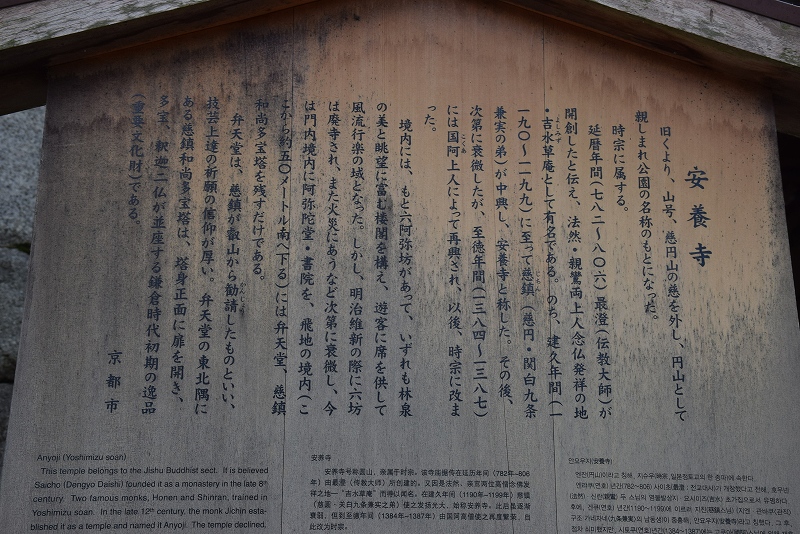 安養寺
旧くより、山号、慈円山の慈を外し、円山として
親しまれ公園の名称のもとになった。
時宗に属する。
延暦年間（七八二～八〇六）最澄（伝教大師）が
開創したと伝え、法然・親鸞両上人念仏発祥の地
・吉水草庵として有名である。のち、建久年間（一
一九〇～一一九九）に至って慈鎮（慈円・関白九条
兼実の弟）が中興し、安養寺と称した。その後、
次第に衰微したが、至徳年間（一三八四～一三八七）
には国阿上人によって再興され、以後、時宗に改ま
った。
境内には、もと六阿弥坊があって、いずれも林泉
の美と眺望に富む楼閣を構え、遊客に席を供して
風流行楽の域となった。しかし、明治維新の際に六坊
は廃寺され、また火災にあうなど次第に衰微し、今
は門内境内に阿弥陀堂・書院を、飛地の境内（こ
こから約五〇メートル南へ下る）には弁天堂、慈鎮
和尚多宝塔を残すだけである。
弁天堂は、慈鎮が叡山から勧請したものといい、
技芸上達の祈願の信仰が厚い。弁天堂の東北隅に
ある慈鎮和尚多宝塔は、塔身正面に扉を開き、
多宝、釈迦二仏が並座する鎌倉時代初期の逸品
（重要文化財）である。
京都市
Anyoji (Yoshimizu soan)
This temple belongs to the Jishu Buddhist sect. It is believed
Saicho (Dengyo Daishi) founded it as a monastery in the late 8th
century. Two famous monks, Honen and Shinran, trained in
Yoshimizu soan. In the late 12th century, the monk Jichin esta-
blished it as a temple and named it Anyoji. The temple declined,
安养寺
安养寺号称慈圆山，隶属于时宗。该寺庙据传在延历年间（782年-806
年）由最澄（传教大师）所创建的。又因是法然、亲鸾两位高僧念佛发
祥之地一“吉水草庵”而得以闻名。在建久年间（1190年-1199年）慈镇
（慈圆・关白九条兼实之弟）使之发扬光大，始称安养寺。此后虽逐渐
衰弱，但到至德年间（1384年-1387年）由国阿高僧使之再度繁荣，自
此改为时宗。
안요우지(安養寺)